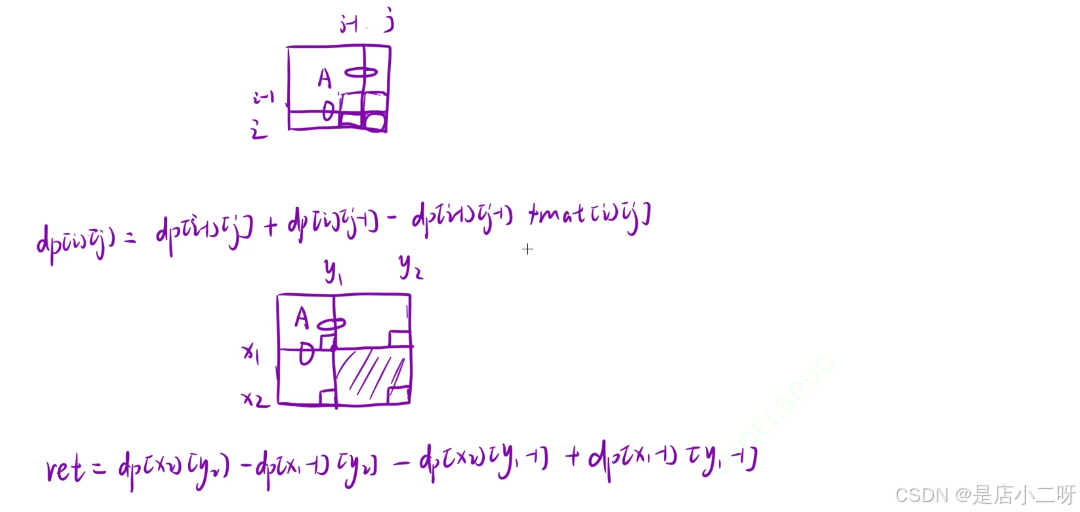 j-1 j
A
i-1
0
i
dp[i][j] = dp[i-1][j] + dp[i][j-1] - dp[i-1][j-1] + mat[i][j]
y₁ y₂
A
x₁
0
x₂
ret = dp[x₂][y₂] - dp[x₁-1][y₂] - dp[x₂][y₁-1] + dp[x₁-1][y₁-1]
CSDN @是店小二呀